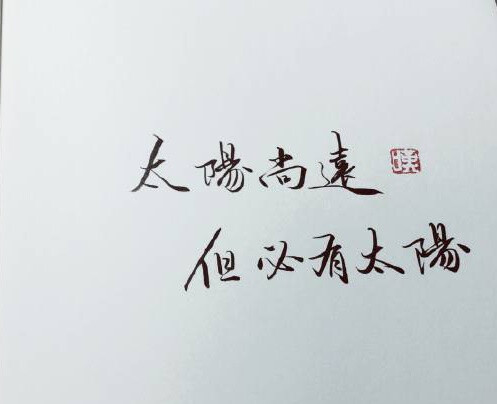 太陽尚遠
但必有太陽